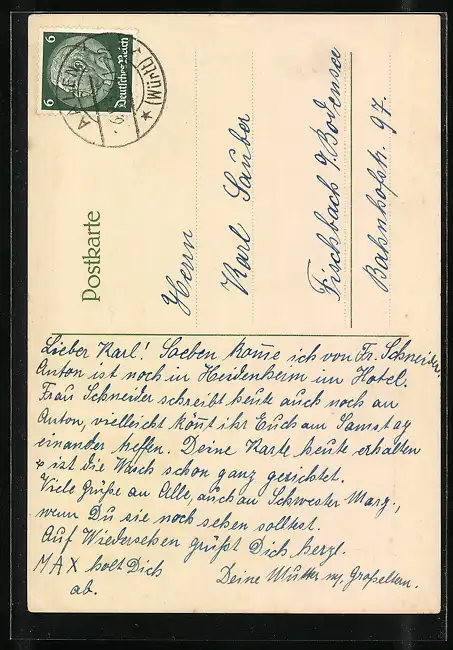 6 6
Deutsches Reich
AALEN
(Württ)
Postkarte
Herrn
Karl Sauber
Fischbach a/Bodensee
Bahnhofstr. 97.
Lieber Karl! Soeben kome ich von Fr. Schneider,
Anton ist noch in Heidenheim im Hotel.
Frau Schneider schreibt heute auch noch an
Anton, vielleicht könt ihr Euch am Samstag
einander treffen. Deine Karte heute erhalten
ist die Wasch schon ganz gerichtet.
Viele Grüße an Alle, auch an Schwester Marg.,
wenn Du sie noch sehen solltest.
Auf Wiedersehen grüßt Dich herzl.
MAX holt Dich
ab.
Deine Mutter Großeltern.